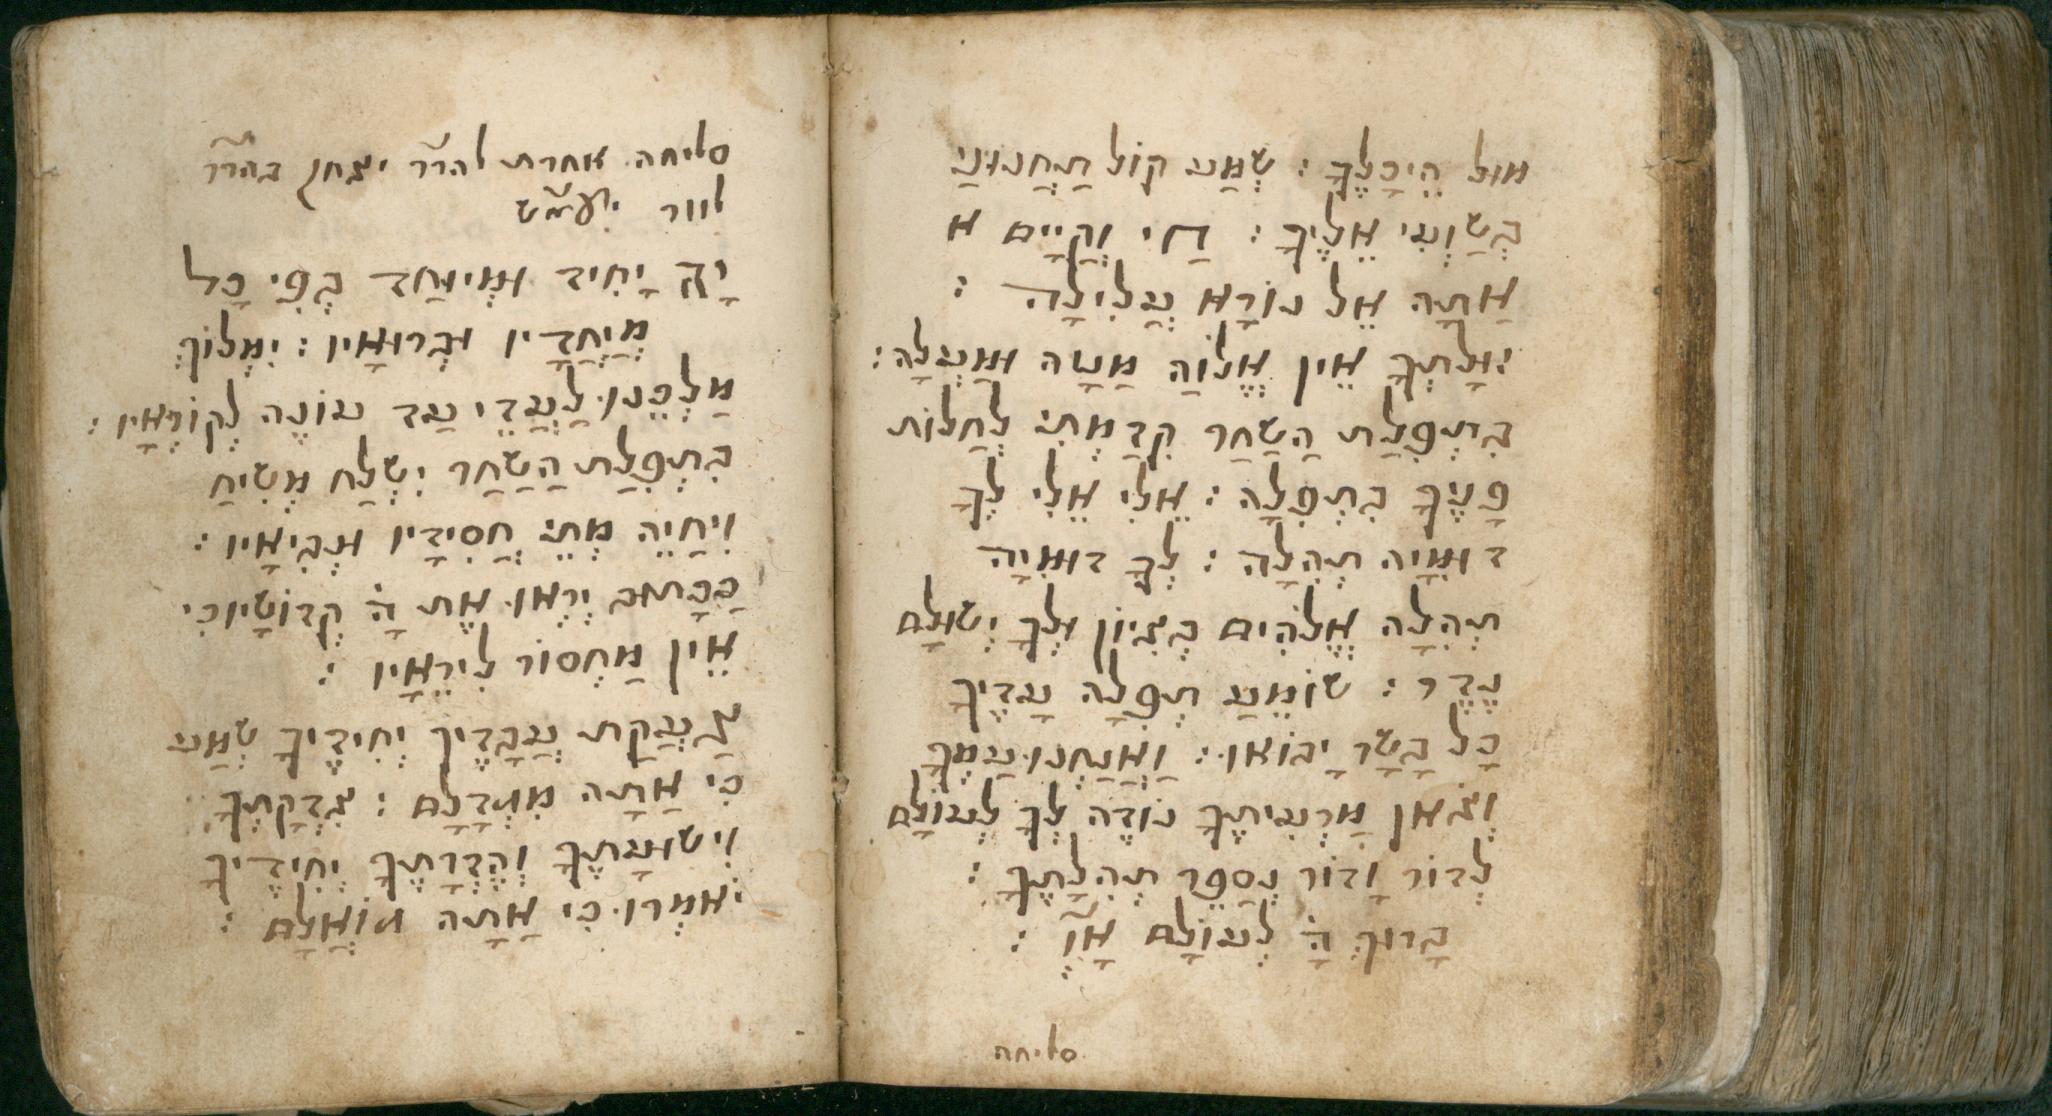 מוּל הֵיכָלֶךָ : שְׁמַע קוֹל תַחֲנוּנַי
בְּשַׁוְעִי אֵלֶיךָ : חַי וְקַיָים א
אַתָּה אֵל נוֹרָא עֲלִילָה :
זוּלָתְךָ אֵין אֱלוֹהַ מַטָה וּמַעְלָה :
בִתְפִלַת הַשַחַר קִדַמְתִי לְחַלוֹת
פָנֶיךָ בִתְפִלָה : אֵלִי אֵלִי לְךָ
דוּמִיָה תְהִלָה : לְךָ דוּמִיָה
תְהִלָה אֱלֹהִים בְצִיוֹן וּלְךָ יְשׁוּלַם
נֶדֶר : שׁוֹמֵעַ תְפִלָה עָדֶיךָ
כָל בָשָר יָבוֹאוּ : וַאֲנַחְנוּ עַמְךָ
וְצֹאן מַרְעִיתֶךָ נוֹדֶה לְךָ לְעוֹלָם
לְדוֹר וָדוֹר נְסַפֵר תְהִלָתֶךָ :
בָרוּךְ הָ' לְעוֹלָם אָ֗וְ :
סליחה
סליחה אחרת להר״ר יצחק בהר״ר
לוור יע״מש
יָהּ יָחִיד וּמְיוּחַד בְפִי כָל
מְיַחֲדָיו וּבְרוּאָיו : יִמְלוֹךְ
מַלְכֵנוּ לַעֲדֵי עַד עוֹנֶה לְקוֹרְאָיו :
בִתְפִלַת הַשַחַר יִשְלַח מְשִיחַ
וִיחַיֵה מְתֵי חֲסִידָיו וּנְבִיאָיו :
כַכָתוּב יְראוּ אֶת הָ' קְדוֹשָיו כִי
אֵין מַחְסוֹר לִירֵאָיו :
צַעֲקַת עֲבָדֶיךָ יְחִידֶיךָ שְמַע
כִי אַתָה : צִדְקָתְךָ
וִישוּעָתֶךָ וְהֶדְרָתֶךָ יְחִידֶיךָ
יֹאמְרוּ כִי אַתָה גוֹאֲלָם :